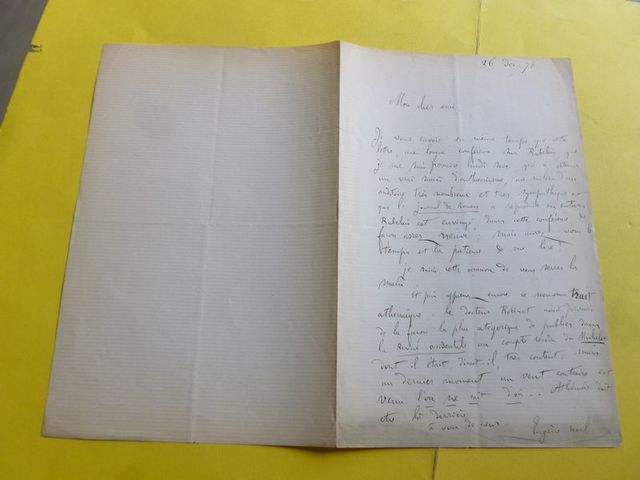 26 Dec 78
Mon cher ami
Je vous envoie en même temps que cette
lettre, une longue conférence sur Rabelais que
je me suis lundi soir, qui a obtenu
un vrai succès d'enthousiasme, au milieu d'un
auditoire très nombreux et très sympathique et
que le journal de Rouen a reproduite en entier.
Rabelais est envisagé dans cette conférence de
façon assez neuve; mais aurez vous le
temps et la patience de me lire?
je saisis cette occasion de vous serrer la
main
et puis encore ce nouveau trait
athénaïque. le docteur Robinet avait promis
de la façon la plus catégorique de publier dans
la Revue occidentale un compte rendu du Michelet
dont il était disait-il, très content. mais
au dernier moment un vent contraire est
venu l'on ne sait d'où... Athénaïs doit
être là derrière
à vous de cœur
Eugène Noel